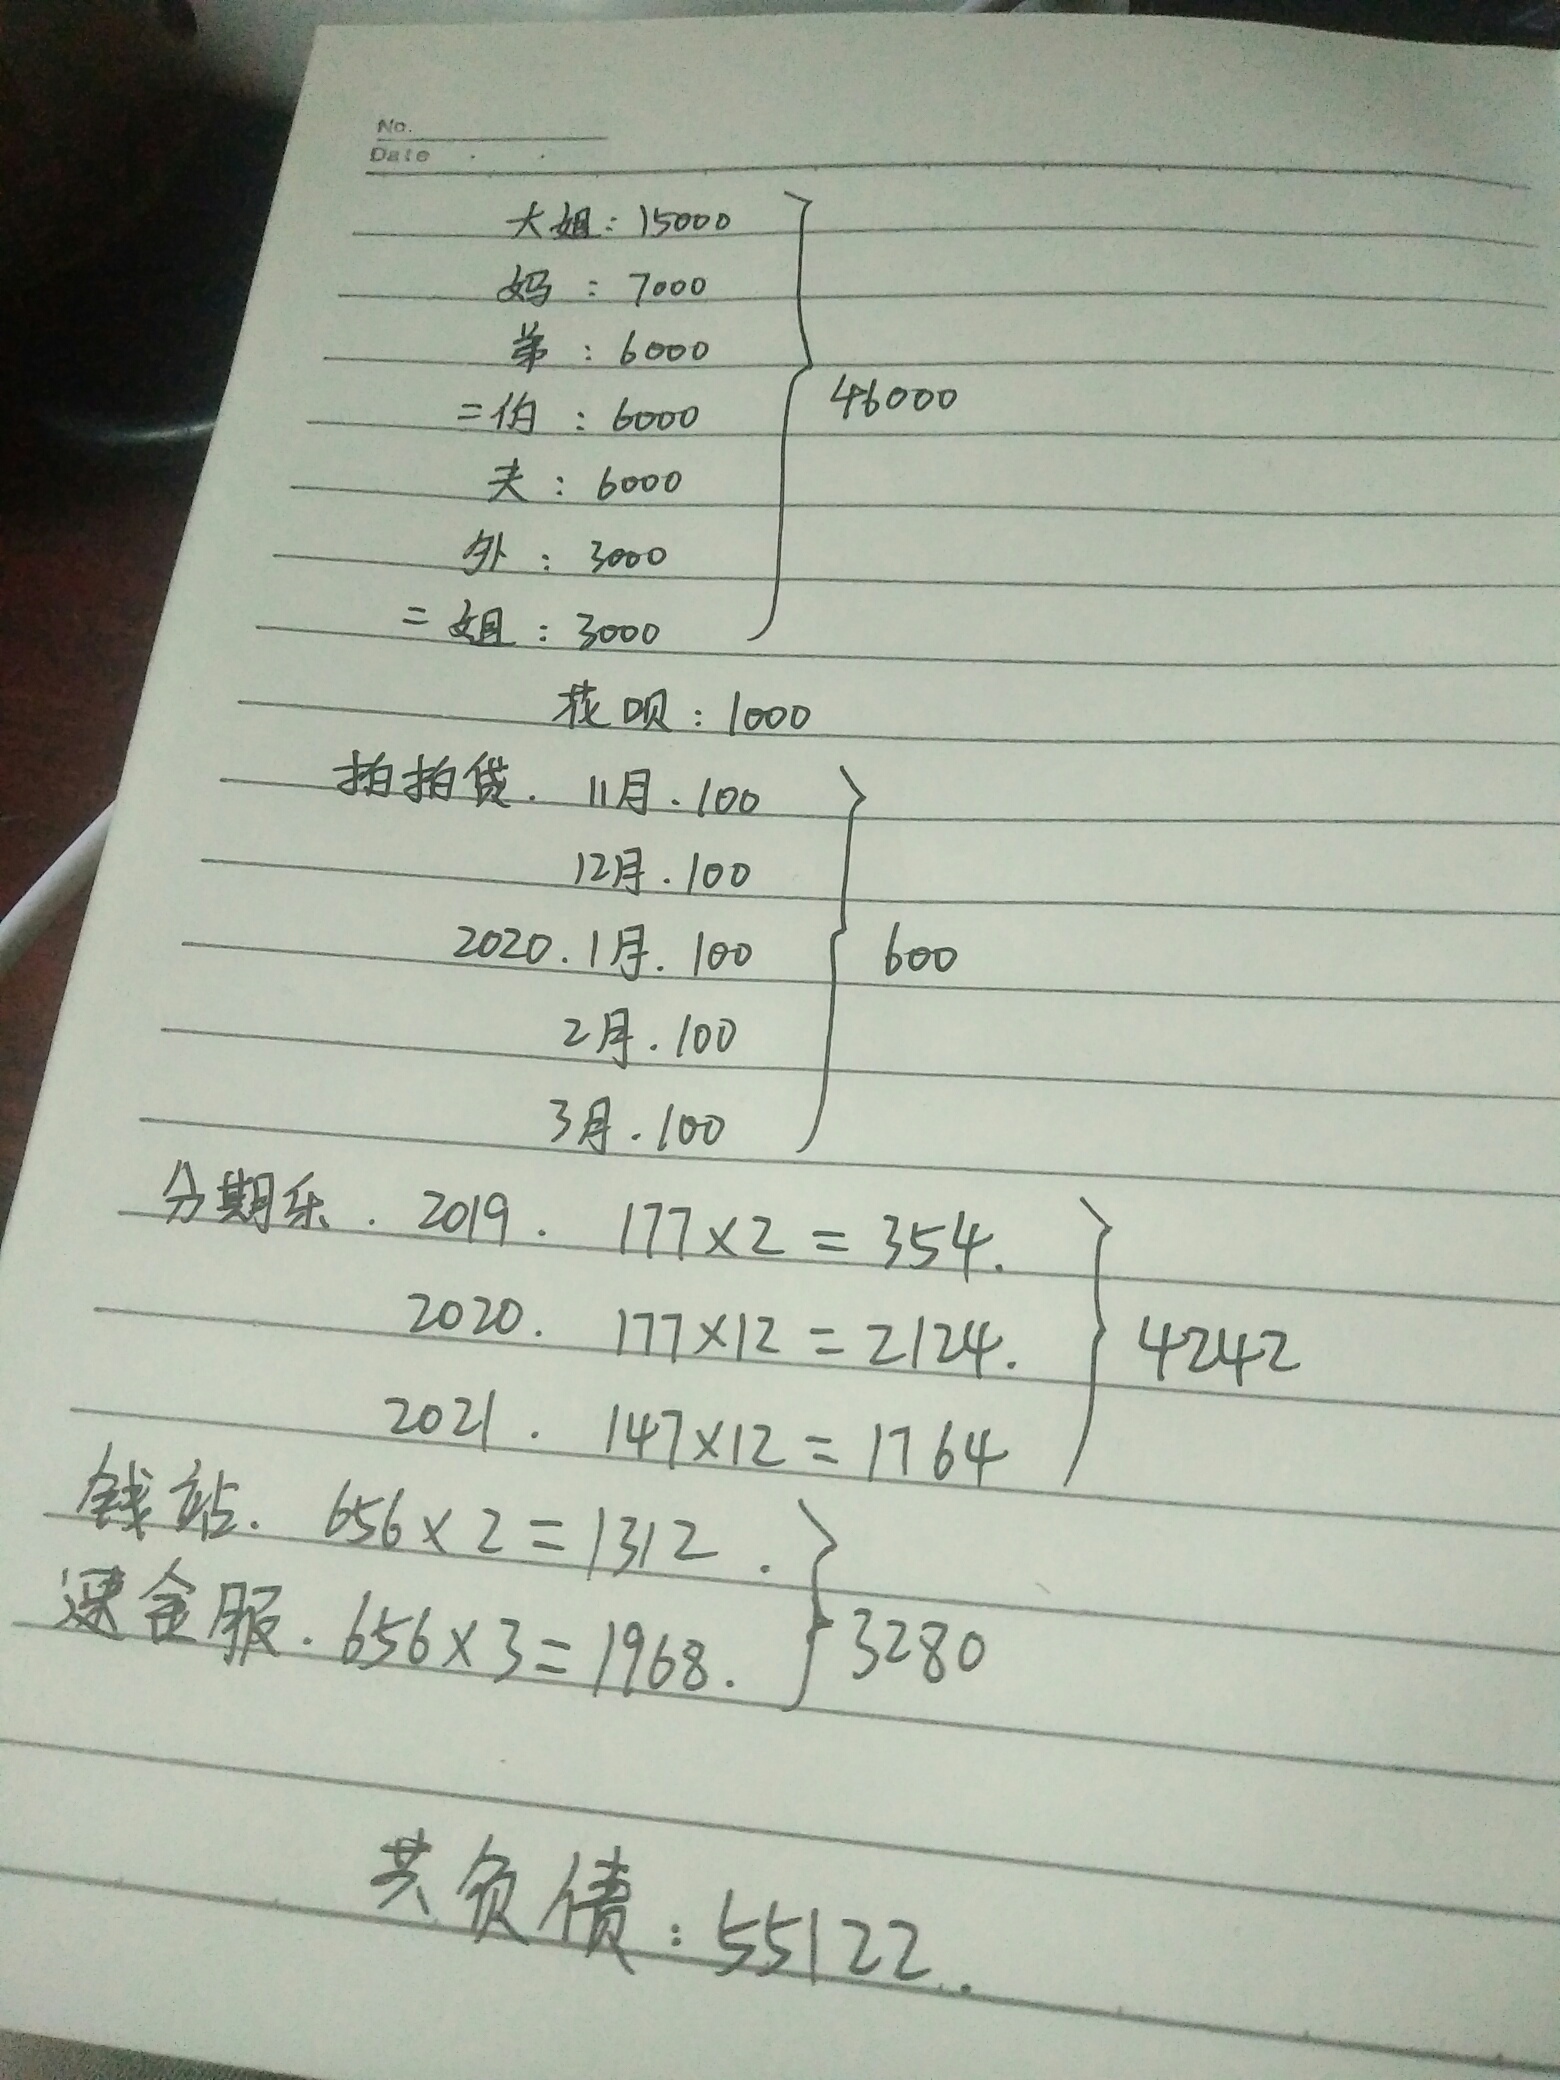 No.
Date
大姐：15000
妈：7000
弟：6000
二伯：6000
夫：6000
外：3000
二姐：3000
46000
花呗：1000
拍拍贷．11月．100
12月．100
2020．1月．100
2月．100
3月．100
600
分期乐．2019．177×2=354．
2020．177×12=2124．
2021．147×12=1764
4242
钱站．656×2=1312．
深金服．656×3=1968．
3280
共负债：55122．．